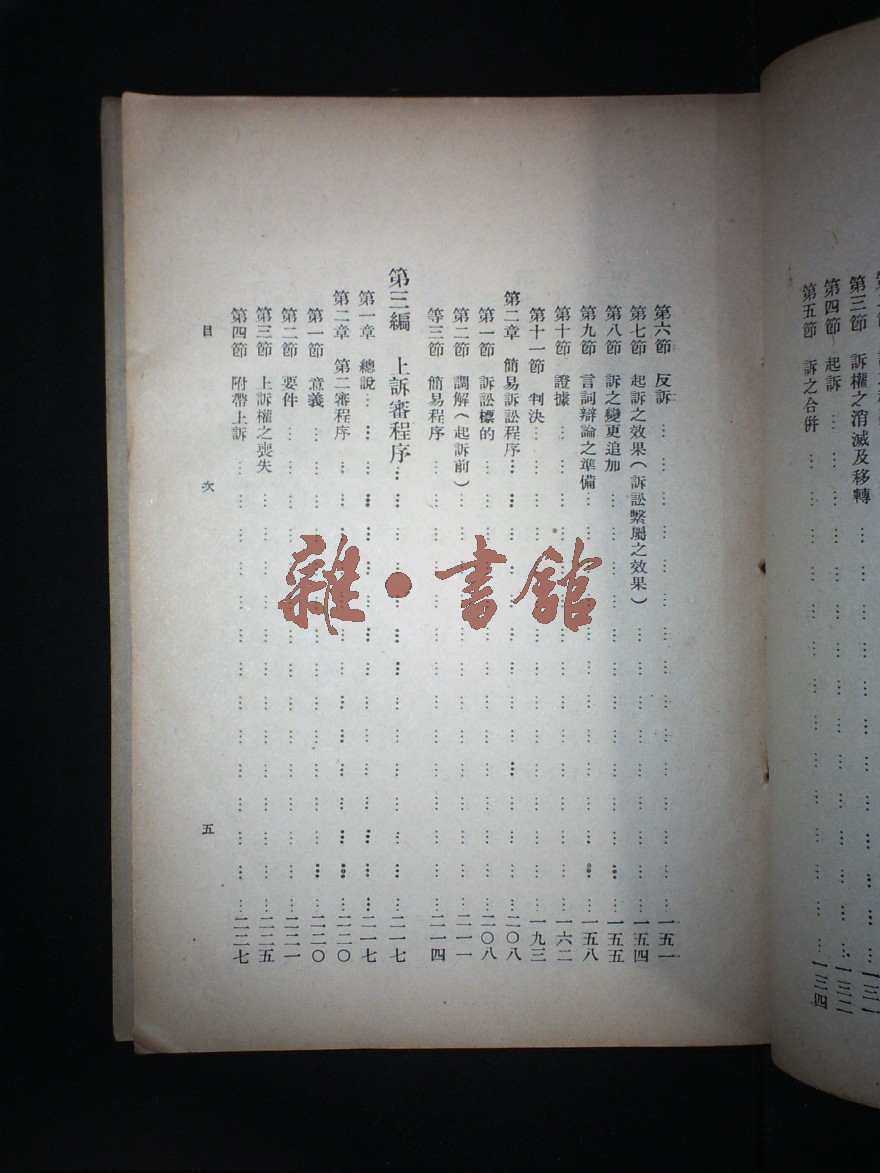 第三節　訴權之消滅及移轉 … … … … … … … … 一三一
第四節　起訴 … … … … … … … … … … … 一三二
第五節　訴之合併 … … … … … … … … … … 一三四
第六節　反訴 … … … … … … … … … … 一五一
第七節　起訴之效果(訴訟繫屬之效果) … … … … … 一五四
第八節　訴之變更追加 … … … … … … … … 一五五
第九節　言詞辯論之準備 … … … … … … … … 一五八
第十節　證據 … … … … … … … … … … 一六二
第十一節　判決 … … … … … … … … … … 一九三
第二章　簡易訴訟程序 … … … … … … … … 二〇八
第一節　訴訟標的 … … … … … … … … … 二〇八
第二節　調解(起訴前) … … … … … … … … 二一一
等三節　簡易程序 … … … … … … … … … 二一四
第三編　上訴審程序 … … … … … … … … … 二一七
第一章　總說 … … … … … … … … … … 二一七
第二章　第二審程序 … … … … … … … … … 二二〇
第一節　意義 … … … … … … … … … … 二二〇
第二節　要件 … … … … … … … … … … 二二一
第三節　上訴權之喪失 … … … … … … … … 二二五
第四節　附帶上訴 … … … … … … … … … 二二七
目　次　五
雜·書館